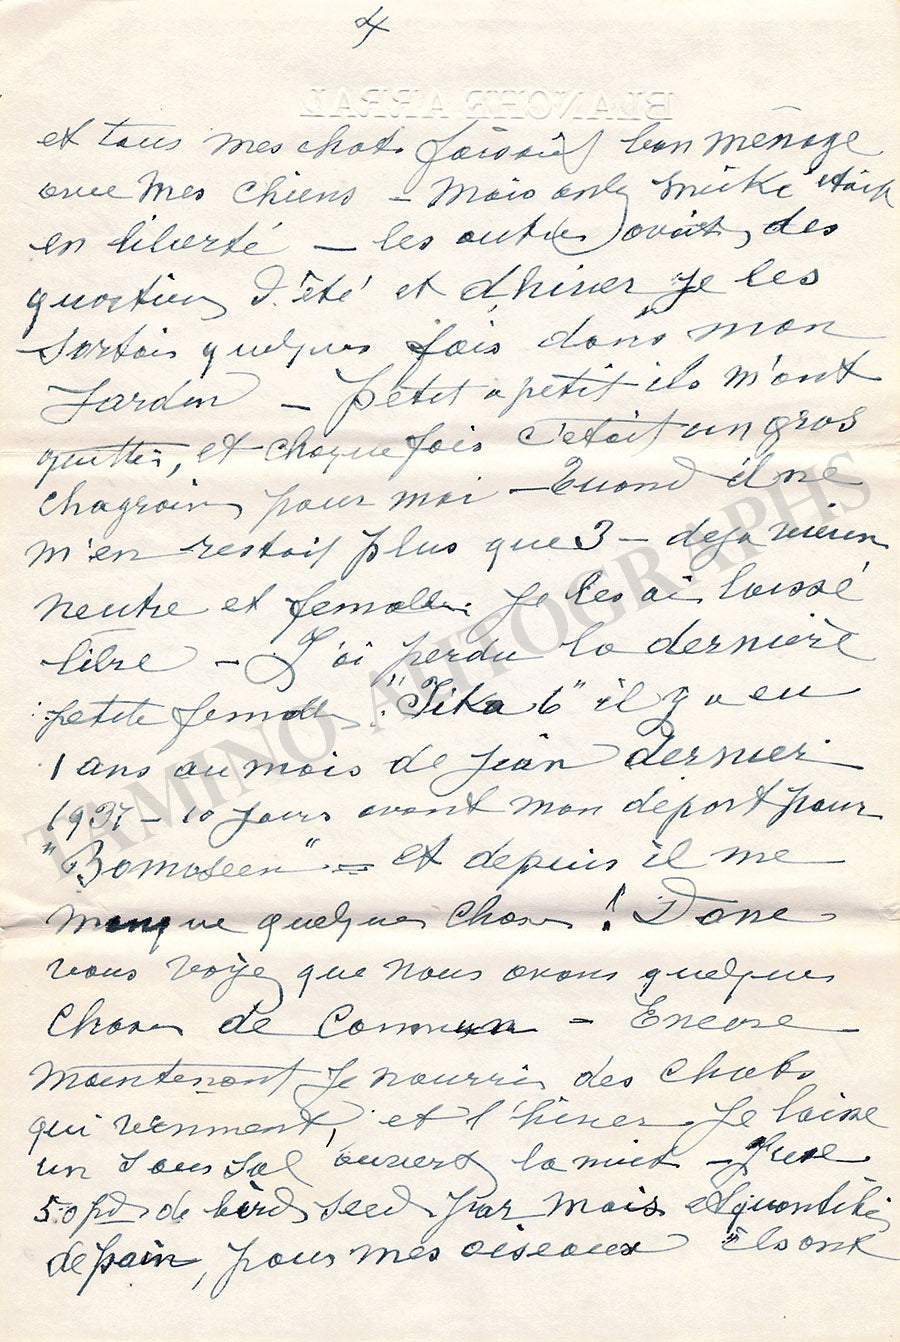 4
BLANCHE ARRAL
et tous mes chats faisait bon ménage
avec mes chiens – Mais only Smike était
en liberté – les autres avait des
quartiers d'été et d'hiver je les
sortais quelques fois dans mon
Jardin – Petit a petit ils m'ont
quittés, et chaque fois c'était un gros
chagrain pour moi – Quand il ne
m'en restait plus que 3 – deja vieux
neutre et femelle je les ai laissé
libre – J'ai perdu la dernière
petite femelle "Tika 6" il y a eu
1 ans au mois de juin dernier
1937 – 10 jours avant mon départ pour
"Bomoseen" = et depuis il me
manque quelques choses! Donc
vous voyez que nous avons quelques
choses de Commun – Encore
maintenant je nourris des chats
qui viennent, et l'hiver je laisse
un sous sol ouvert la nuit – J'use
50 pds de bird seed par mois et quantités
de pain, pour mes oiseaux Ils ont
TAMINO AUTOGRAPHS